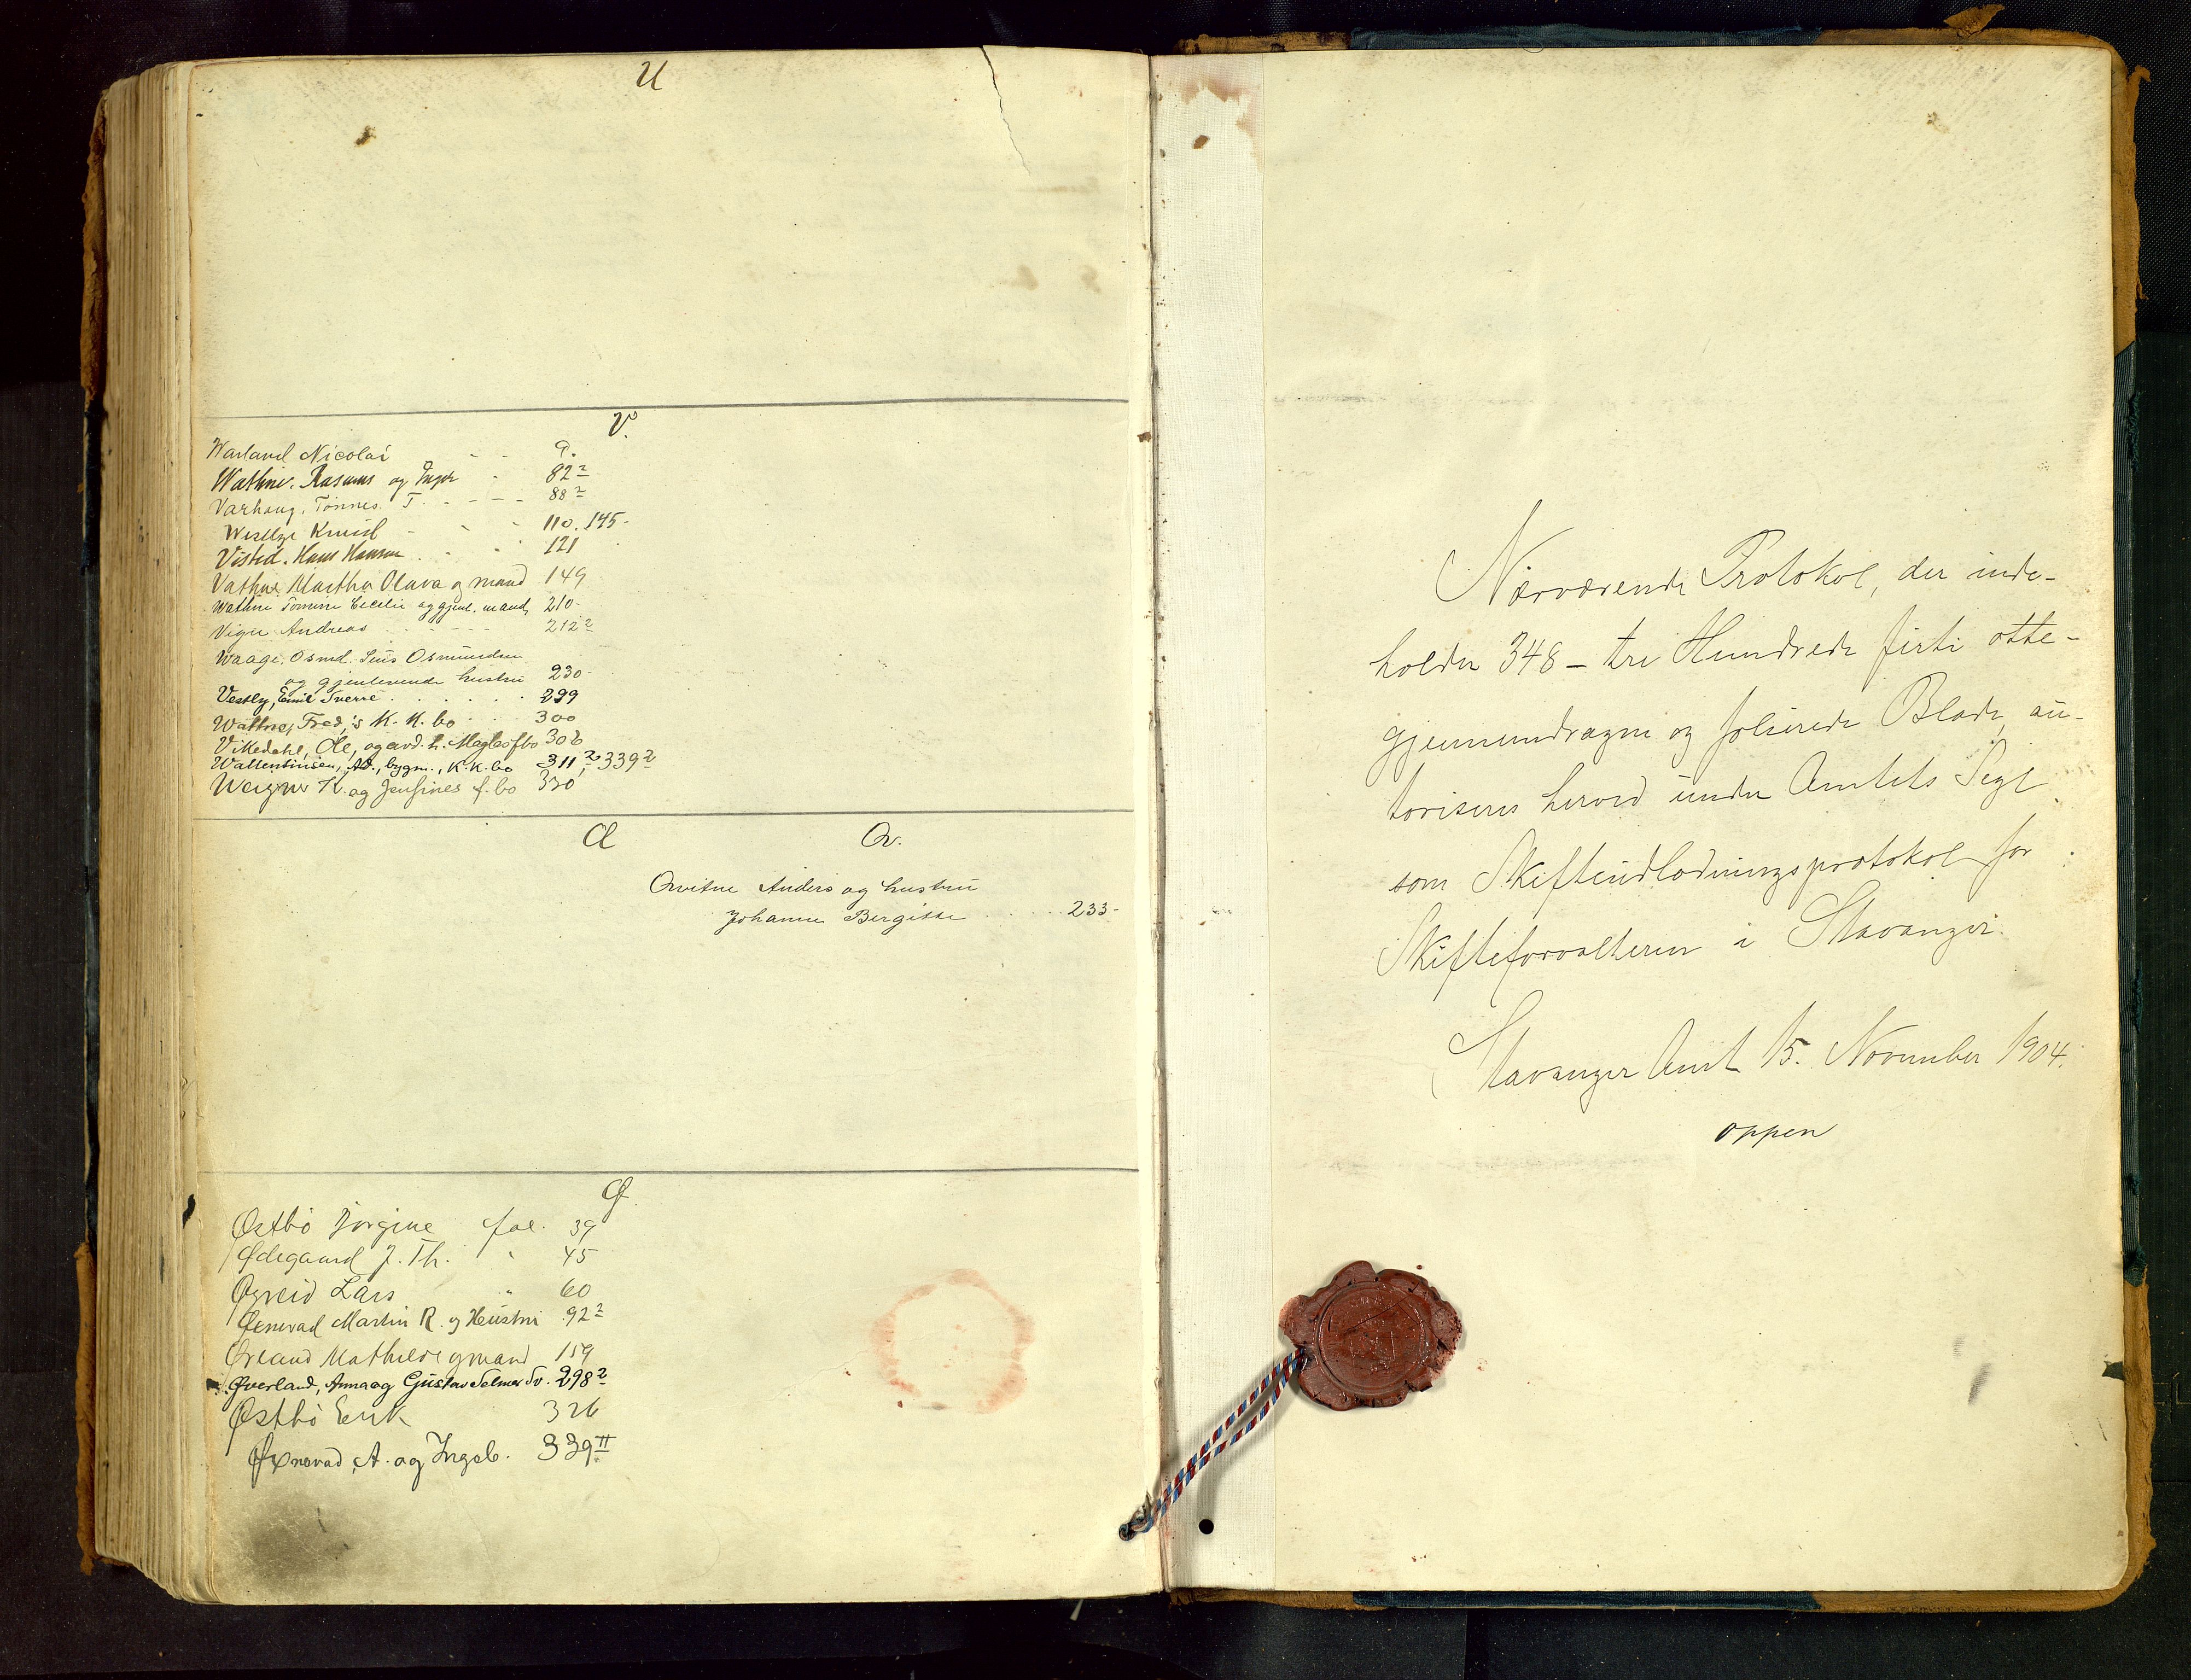 U
V.
Warland Nicolai - - 9.
Wathne. Rasmus og Inger - 82²
Varhaug. Tönnes. T. - - - - 88²
Westlye Knud - - - 110. 145-
Visted. Hans Hansen . - - 121
Vathne Martha Olava og mand 149
Wathne Tomine Cecilie og gjenl. mand, 210-
Vigre Andreas - - - - 212²
Waage. Osmd. Sius Osmundsen
og gjenlevende hustru 230-
Vestly, Emil Sverre . . . . . 299
Wathne, Fred,'s K.K. bo . . 300
Vikedahl, Ole, og avd. h. Magla sfbo 306
Wallentinsen, Ad., bygm., K.K. bo 311,² 339²
Weigner K. og Jensines f. bo 330
Æ Qv.
Qvitne Anders og hustru
Johanne Bergitte . . . . . 233-
Ø
Østbö Jörgine fol. 39
Ødegaard J. Th. " 45
Øgreid Lars " 60
Øxnevad Martin R. og Hustru 92²
Ørland Mathilde og mand 159
Øverland, Anna og Gustav Selmer Sv. 298²
Østbö Erik 326
Øxnevad, A. og Ingeb. 339 II
Nærværende Protokol, der inde-
holder 348 – tre Hundrede firti otte –
gjennemdragne og folierede Blade, au-
toriseres herved under Amtets Segl
som Skifteudlodningsprotokol for
Skifteforvalteren i Stavanger.
Stavanger Amt 15. November 1904.
Oppen